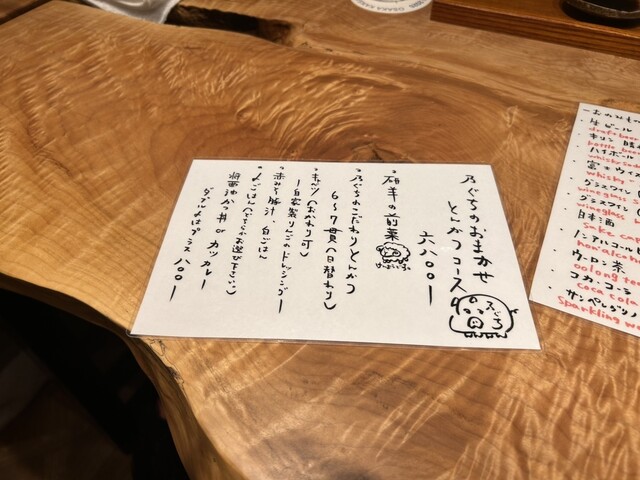 乃ぐちのおまかせ
とんかつコース
六八〇〇ー
乃ぐち
・研羊の前菜
・乃ぐちこだわりとんかつ
6〜7貫(日替わり)
・キャベツ(おかわり可)
ー自家製りんごのドレッシングー
・赤みそ豚汁、白ごはん
・〆ごはん(どちらかお選び下さい)
将西油かつ丼 or カツカレー
ダブル〆はプラス八〇〇ー
ーおのみもの
・生ビール
draft beer
・キリン
bottle bee
・ハイボール
whisky soda
・富士ウイス
whisky
・グラスワイン
wineglass
・グラスワイン
wineglass
・日本酒
sake
・ノンアルコールビ
nonalcohol
・ウーロン茶
oolong tea
・コカ・コーラ
coca cola
・サンペレグリノ
Sparkling w